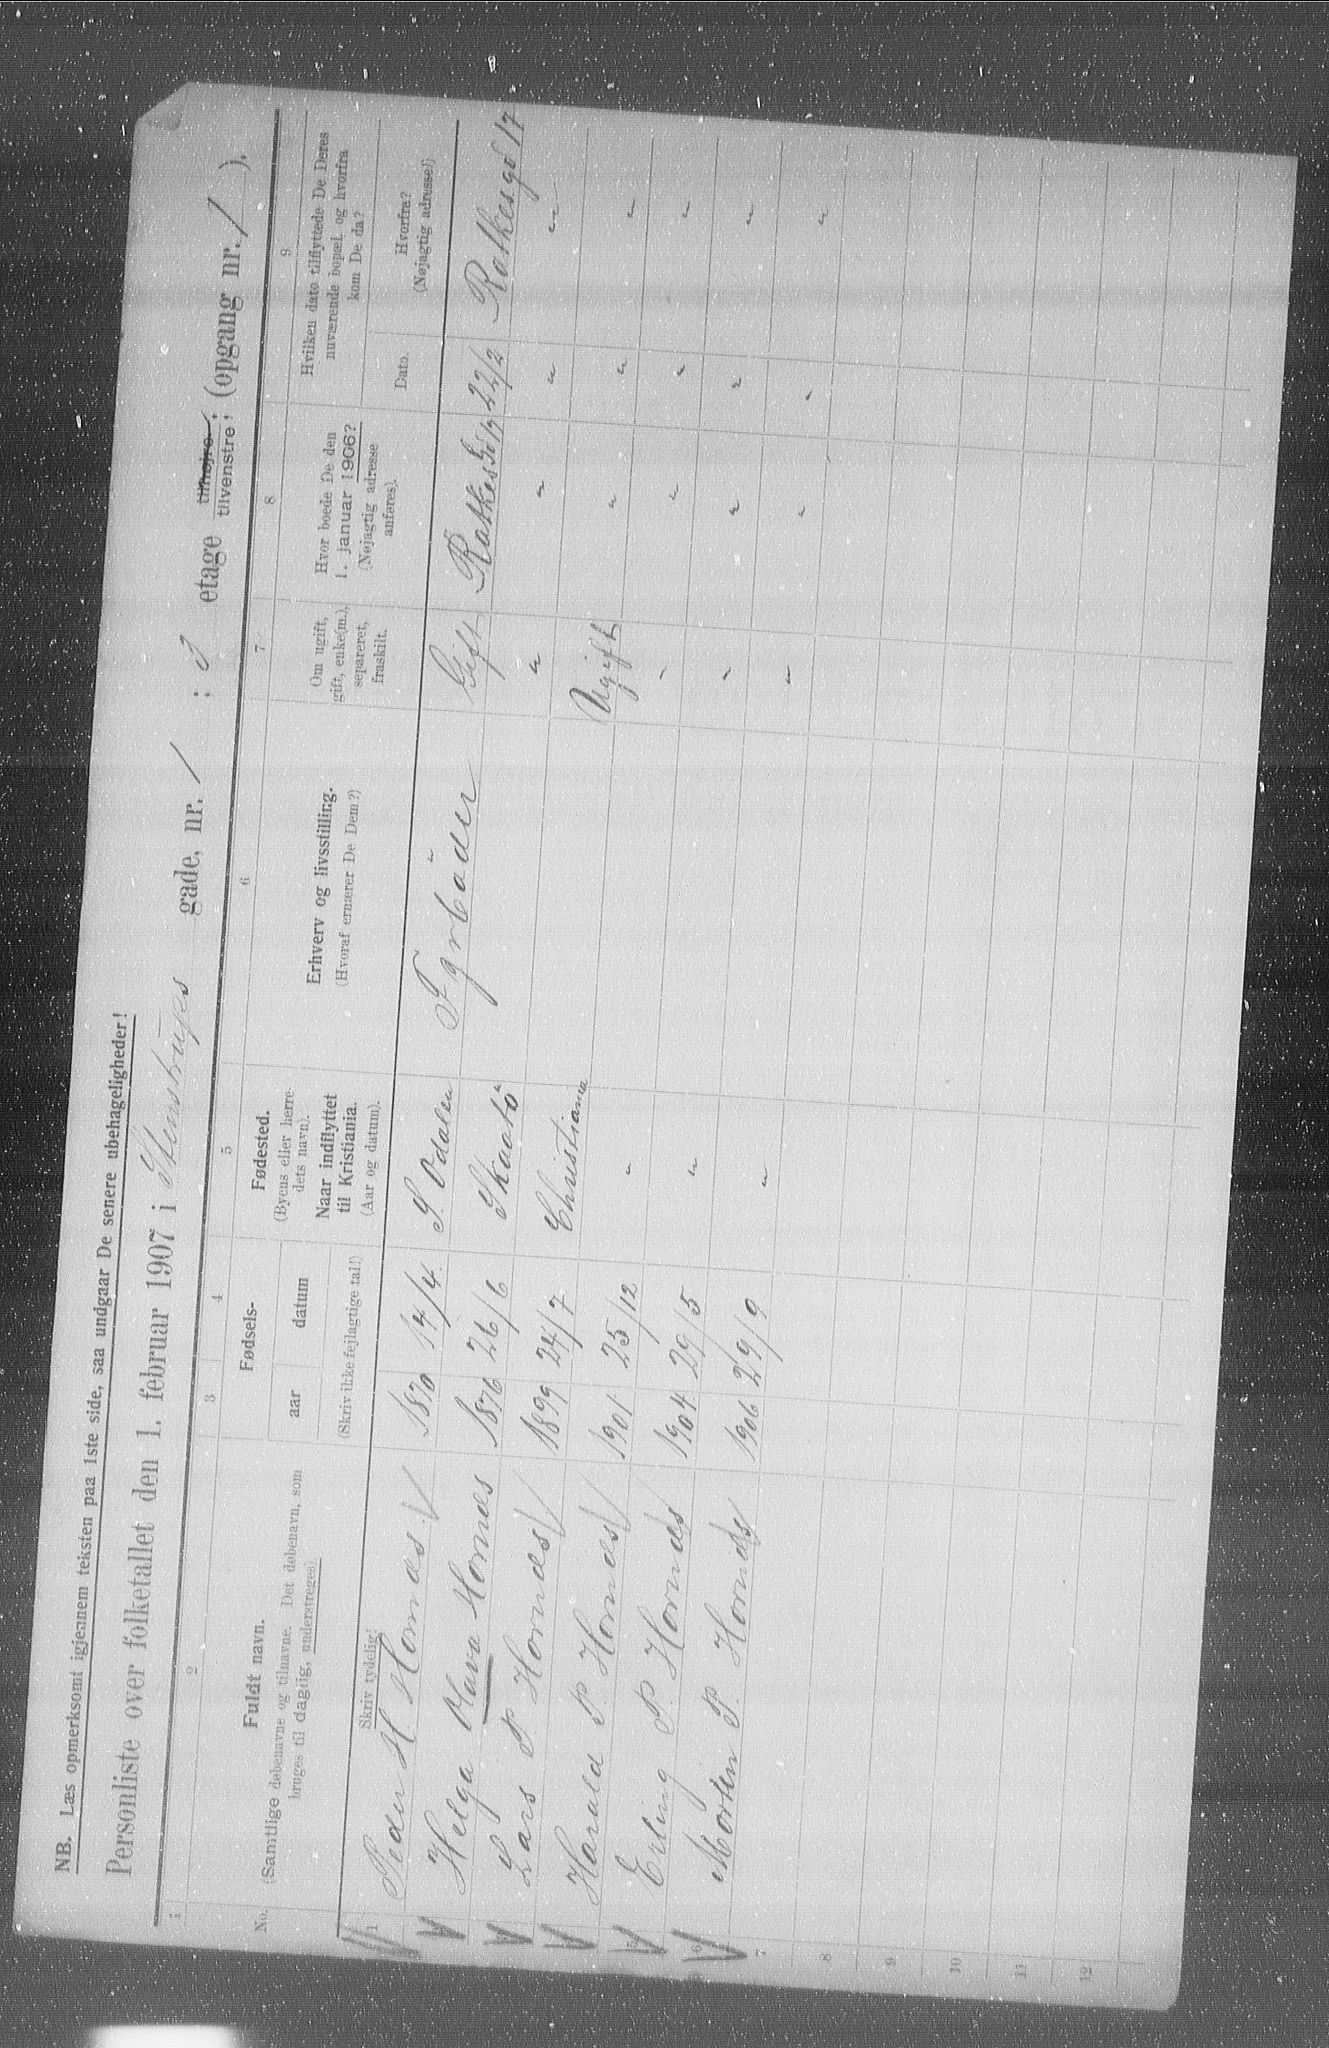 NB. Læs opmerksomt igjennem teksten paa 1ste side, saa undgaar De senere ubehageligheder!
Personliste over folketallet den 1. februar 1907 i Stenstrups gade, nr. 1 ; 3 etage tilhøjre, tilvenstre, (opgang nr. 1 ).
1 2 3 4 5 6 7 8 9
No. Fuldt navn. (Samtlige døbenavne og tilnavne. Det døbenavn, som bruges til daglig, understreges). Skriv tydelig!
Fødsels- aar datum (Skriv ikke fejlagtige tal!)
Fødested. (Byens eller herredets navn). Naar indflyttet til Kristiania. (Aar og datum).
Erhverv og livsstilling. (Hvoraf ernærer De Dem?)
Om ugift, gift, enke(m.), separeret, fraskilt.
Hvor boede De den 1. januar 1906? (Nøjagtig adresse anføres).
Hvilken dato tilflyttede De Deres nuværende bopæl, og hvorfra kom De da?
Dato. Hvorfra? (Nøjagtig adresse!)
1 Peder H. Hornnes 1870 14/4 S. Odalen Gift Ratkesgd 17 22/2 Ratkesgd 17
Helga Olava Hornnes 1876 26/6 Skaatö " " " "
Lars P. Hornnes 1899 24/7 Christiania Ugift " " "
Harald P. Hornnes 1901 25/12 " " " " "
5 Erling P. Hornnes 1904 29/5 " " " " "
6 Morten P. Hornnes 1906 29/9 " " " " "
7
8
9
10
11
12